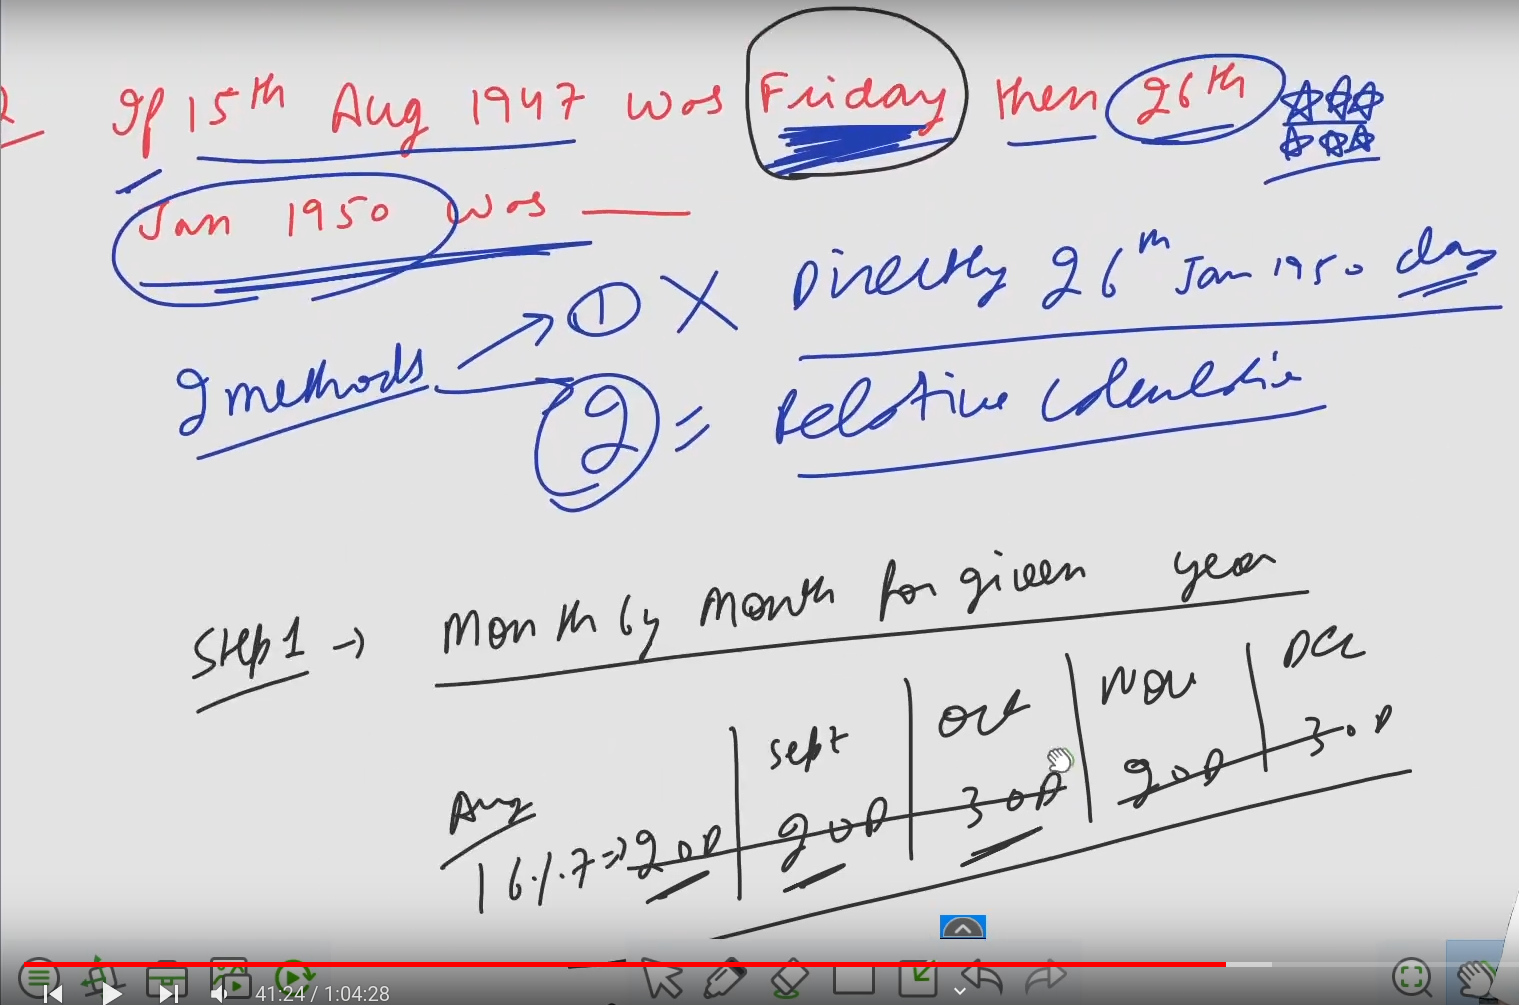 If 15th Aug 1947 was Friday then 26th
Jan 1950 was ___
2 methods → ① X Directly 26th Jan 1950 day
② =
Step 1 → Month by Month for given year
Aug | Sept | Oct | Nov | Dec
16 % 7 ⇒ 2 OD | 2 OD | 3 OD | 2 OD | 3 OD
41:24 / 1:04:28